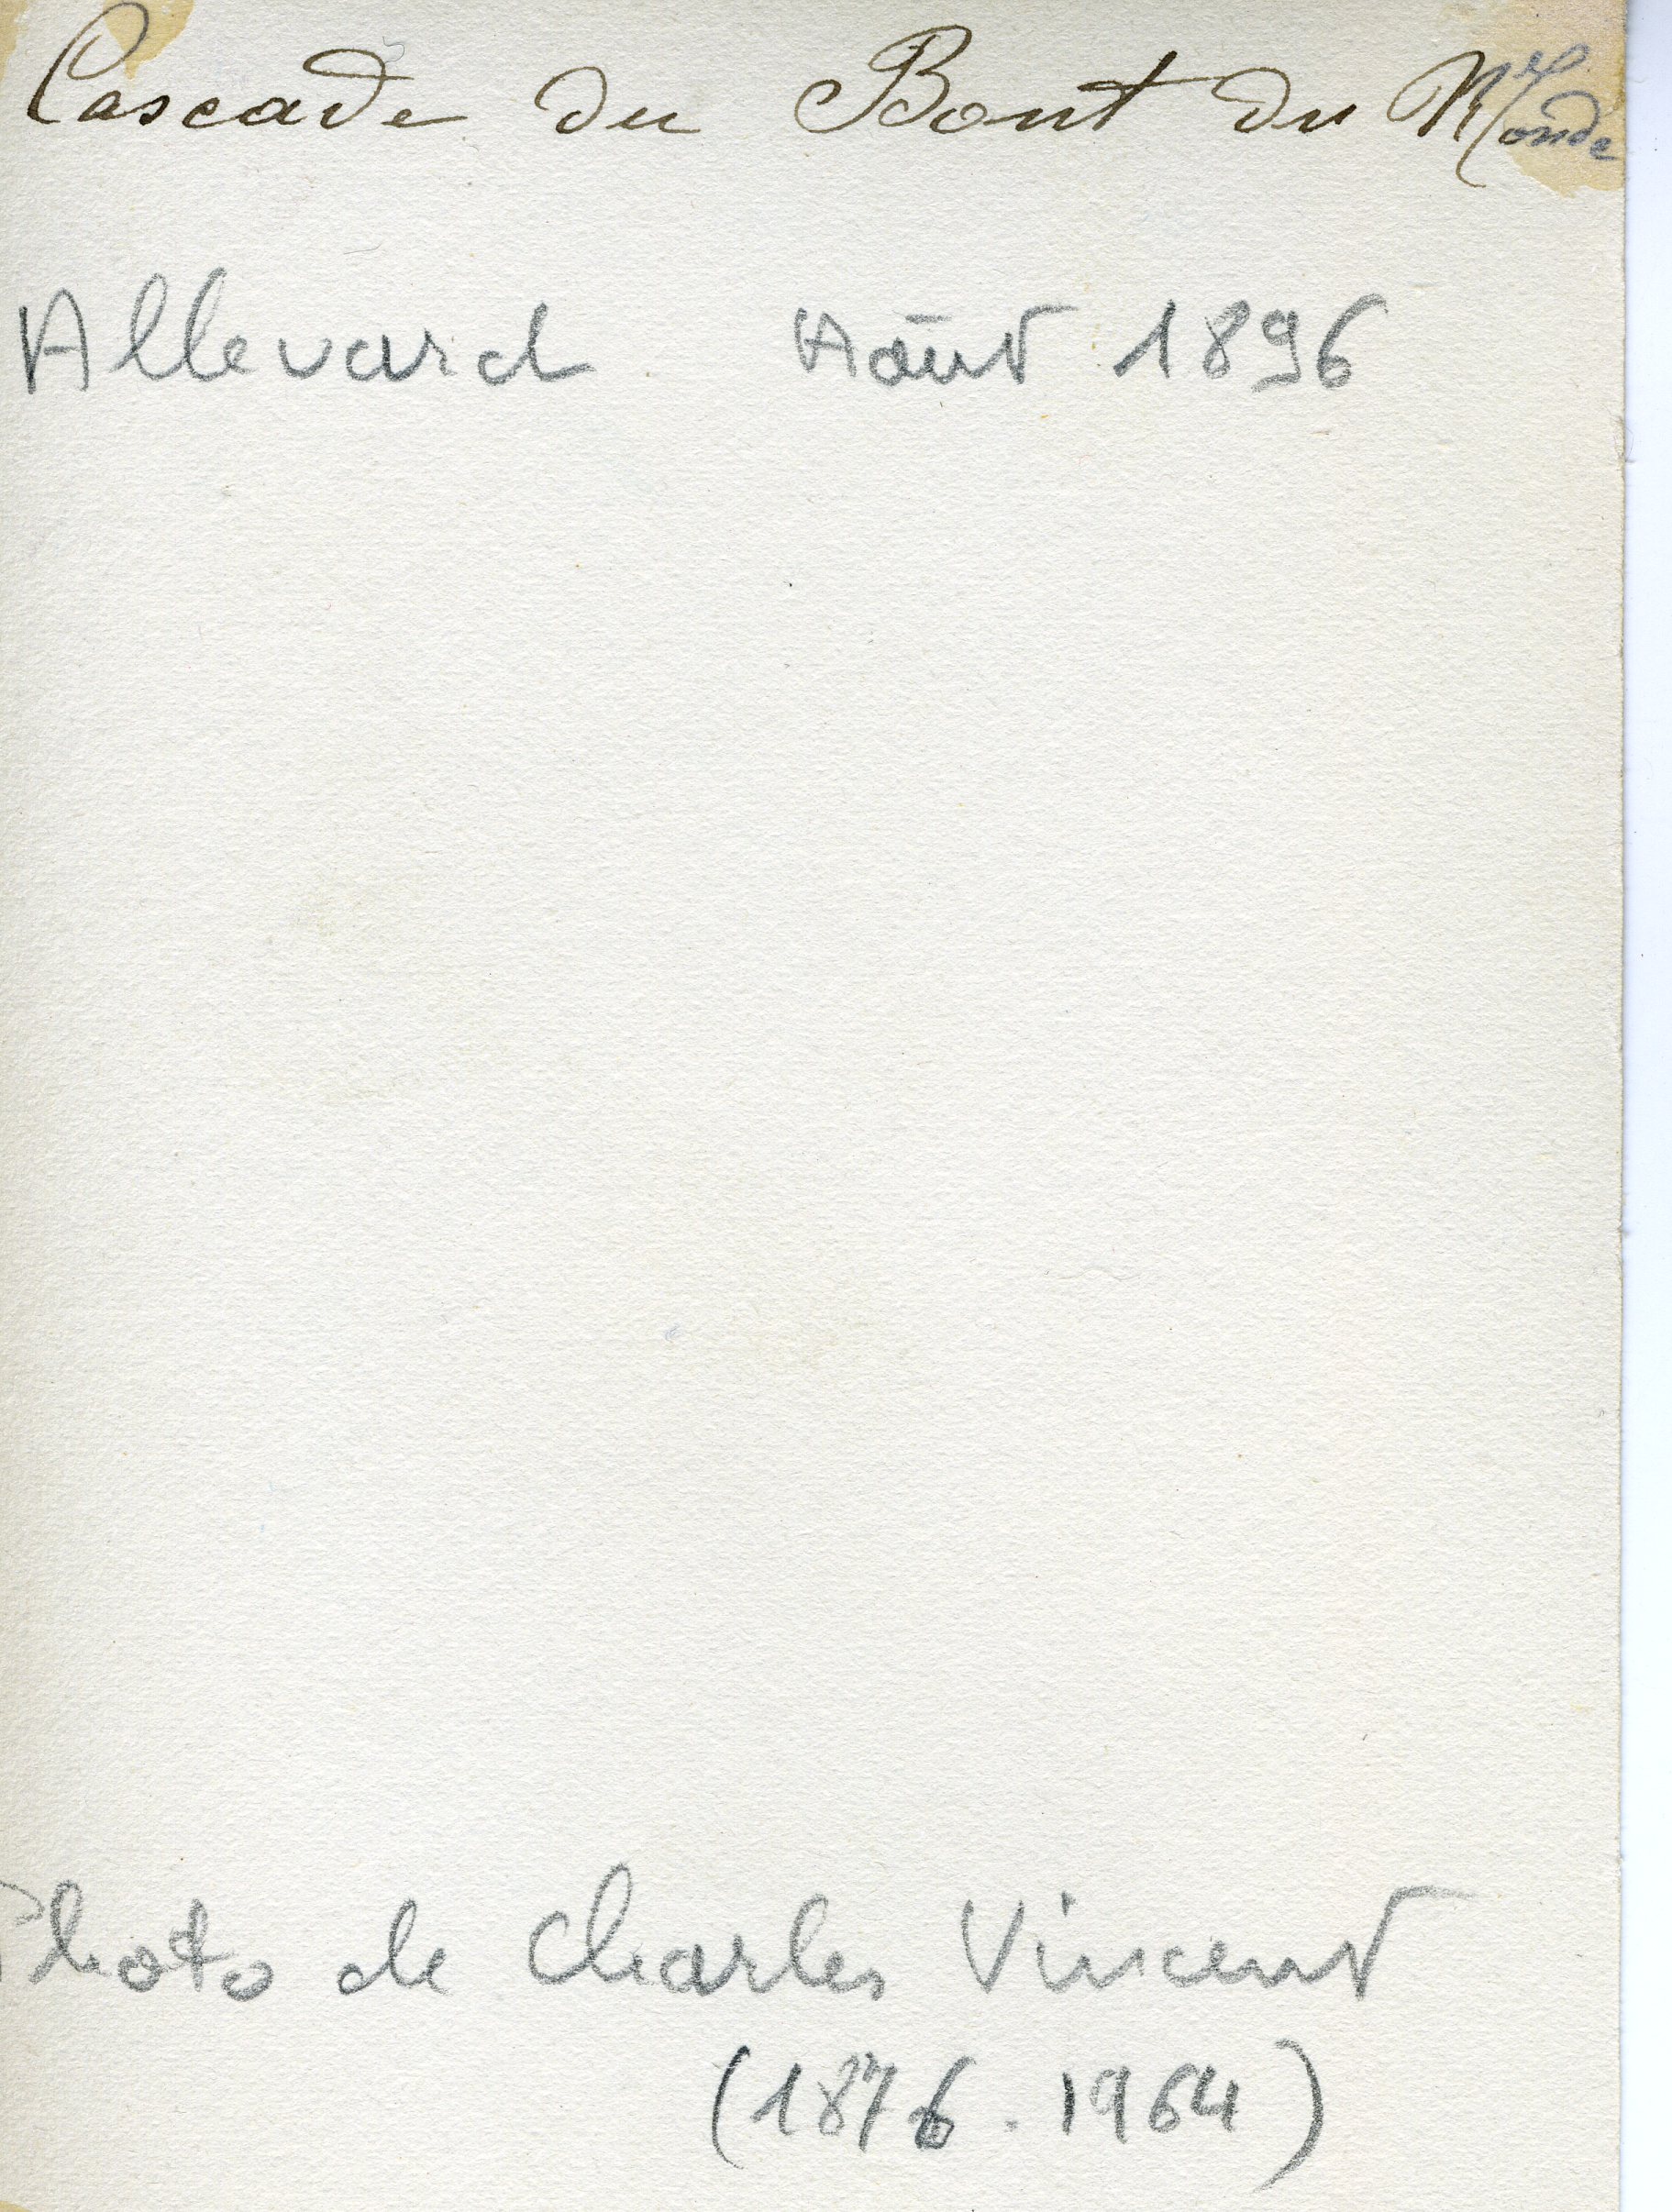 Cascade du Bout du Monde
Allevard Août 1896
Photo de Charles Vincent
(1876.1964)